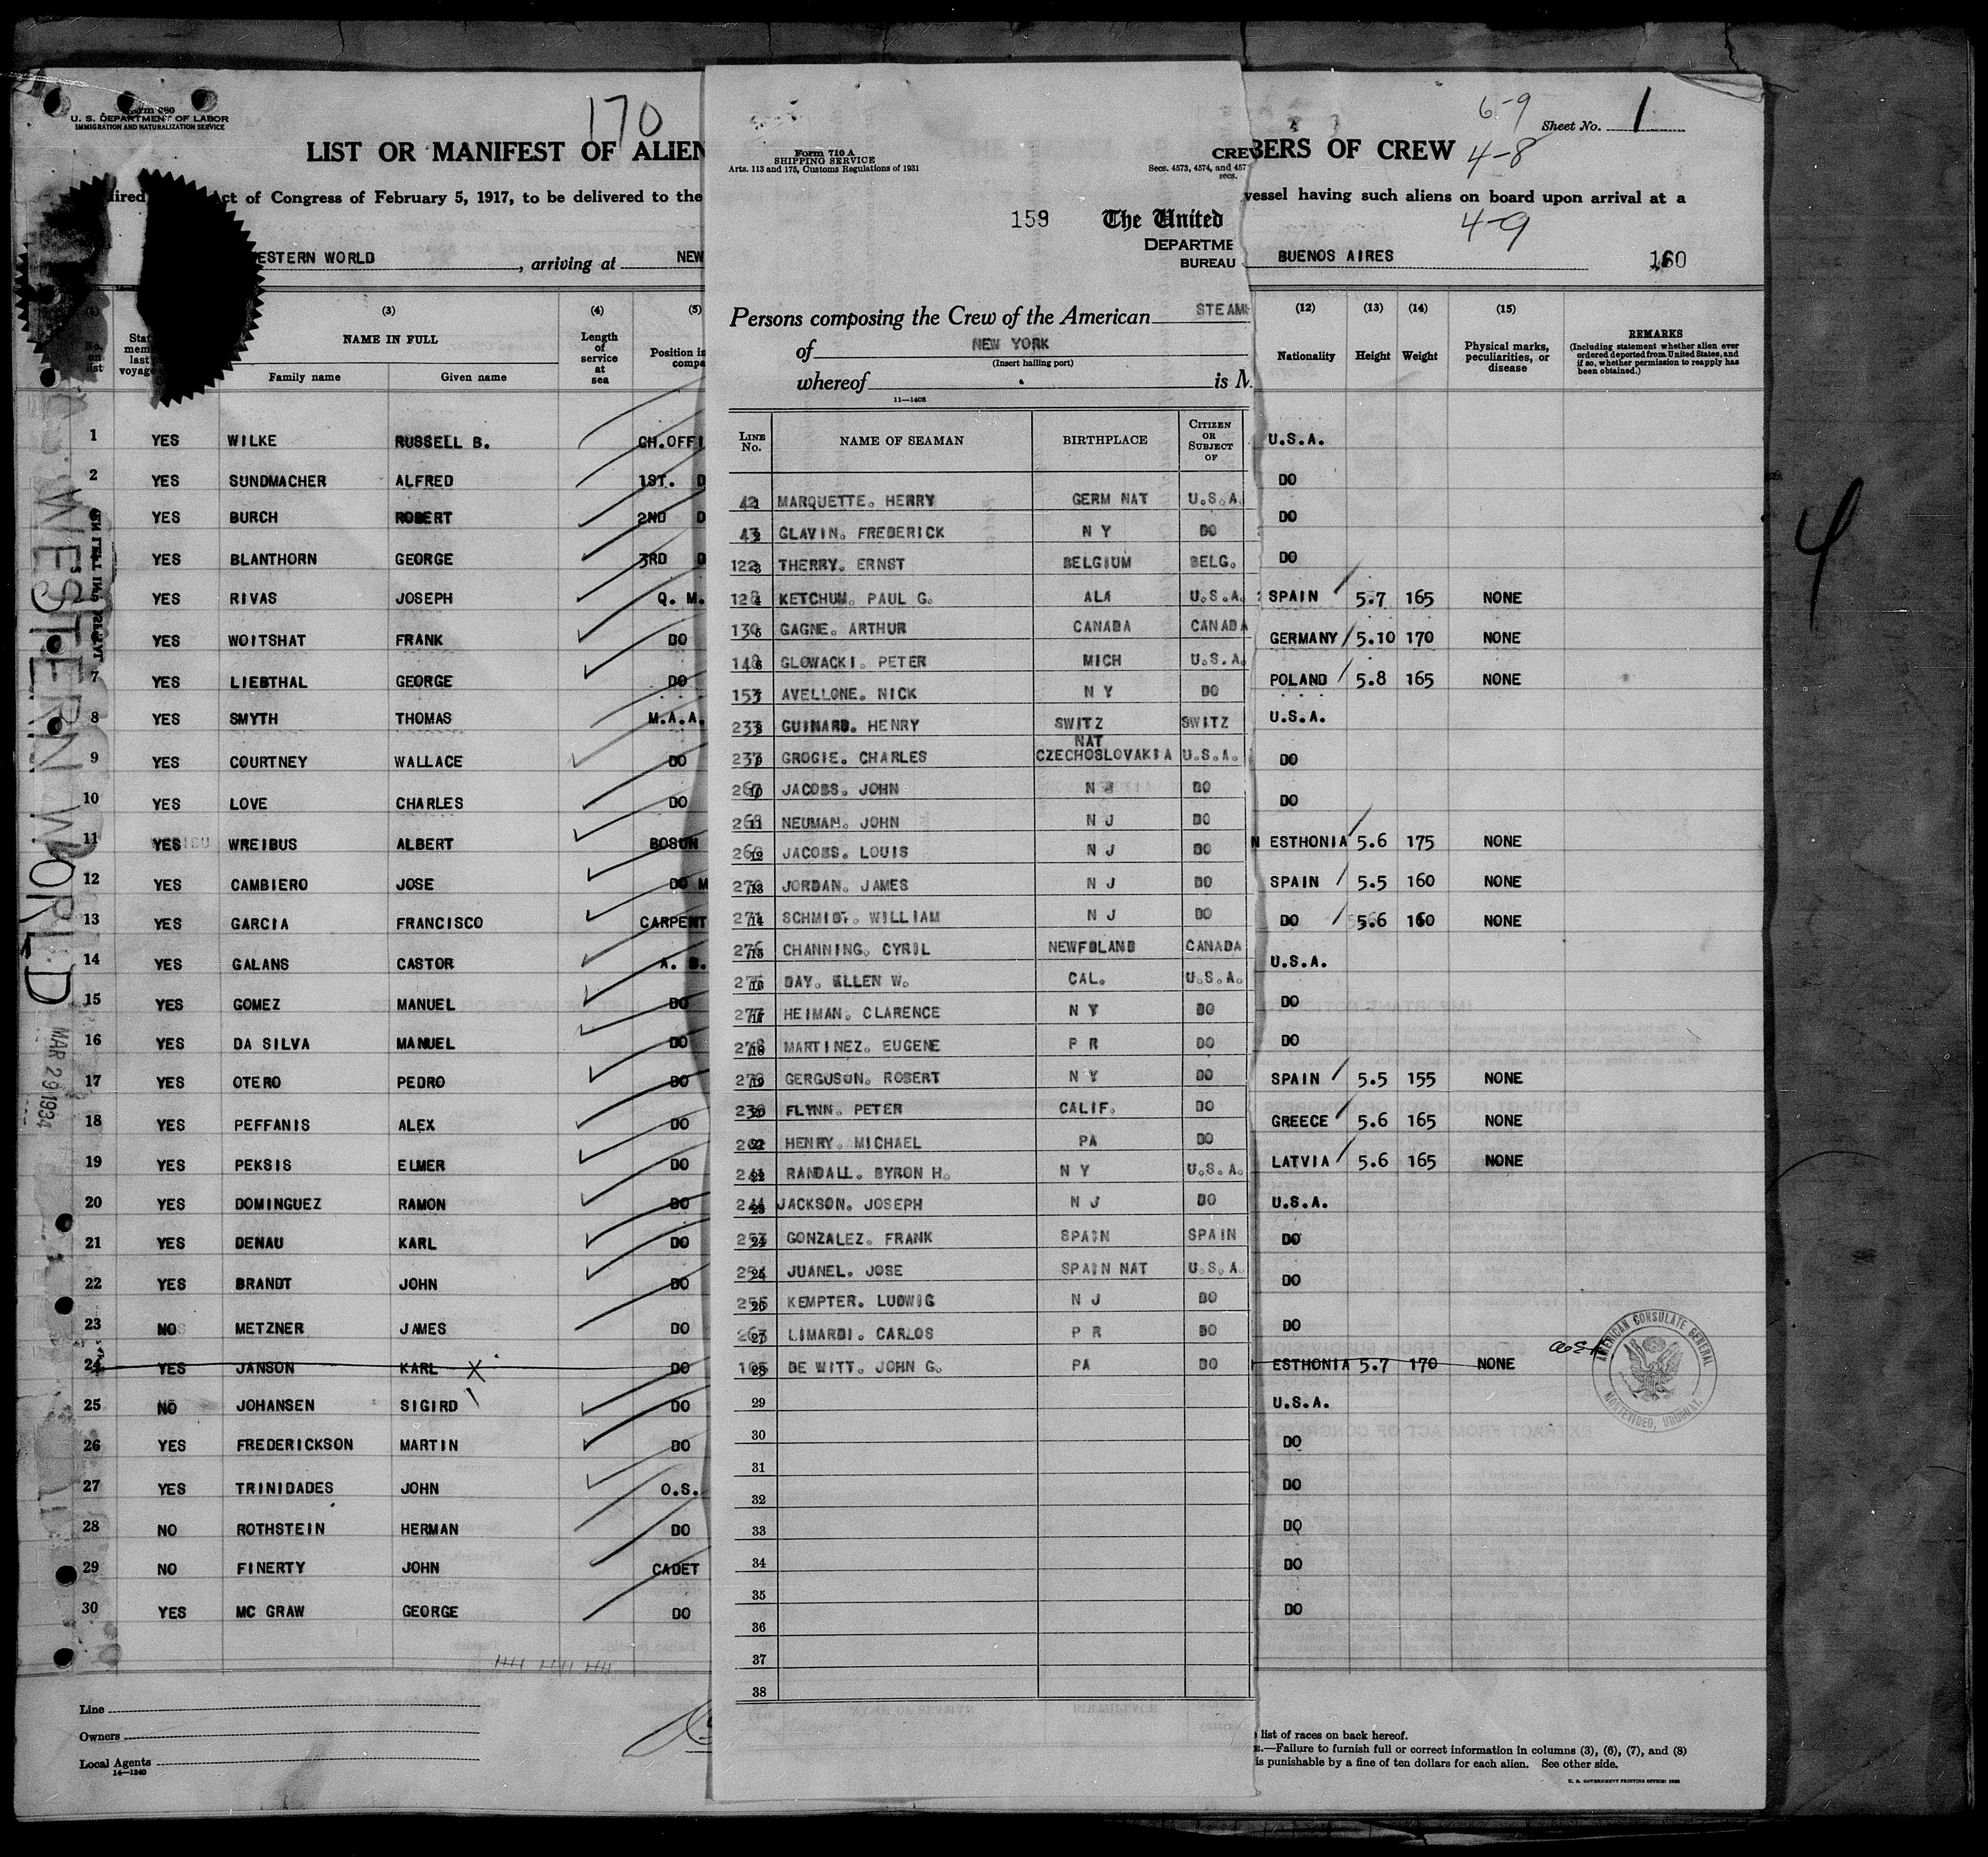 170
6-9
4-8
4-9
Sheet No. 1
Form 680
U. S. DEPARTMENT OF LABOR
IMMIGRATION AND NATURALIZATION SERVICE
LIST OR MANIFEST OF ALIEN
BERS OF CREW
ct of Congress of February 5, 1917, to be delivered to the
vessel having such aliens on board upon arrival at a
ESTERN WORLD, arriving at NEW
BUENOS AIRES
160
(3) (4) (5)
No. on list
NAME IN FULL
Family name Given name
Length of service at sea
Position in
1 YES WILKE RUSSELL B. CH.OFFI
2 YES SUNDMACHER ALFRED 1ST. D
YES BURCH ROBERT 2ND D
YES BLANTHORN GEORGE 3RD D
YES RIVAS JOSEPH Q. M.
YES WOITSHAT FRANK DO
7 YES LIEBTHAL GEORGE DO
8 YES SMYTH THOMAS M.A.A.
9 YES COURTNEY WALLACE DO
10 YES LOVE CHARLES DO
11 YES WREIBUS ALBERT BOSUN
12 YES CAMBIERO JOSE DO M
13 YES GARCIA FRANCISCO CARPENT
14 YES GALANS CASTOR A. B.
15 YES GOMEZ MANUEL DO
16 YES DA SILVA MANUEL DO
17 YES OTERO PEDRO DO
18 YES PEFFANIS ALEX DO
19 YES PEKSIS ELMER DO
20 YES DOMINGUEZ RAMON DO
21 YES DENAU KARL DO
22 YES BRANDT JOHN DO
23 NO METZNER JAMES DO
24 YES JANSON KARL X DO
25 NO JOHANSEN SIGIRD DO
26 YES FREDERICKSON MARTIN DO
27 YES TRINIDADES JOHN O.S.
28 NO ROTHSTEIN HERMAN DO
29 NO FINERTY JOHN CADET
30 YES MC GRAW GEORGE DO
Line
Owners
Local Agents
14—1240
WESTERN WORLD
MAR 29 1934
Form 710 A
SHIPPING SERVICE
Arts. 113 and 175, Customs Regulations of 1931
CREW
Secs. 4573, 4574, and 457
secs.
159
The United
DEPARTME
BUREAU
Persons composing the Crew of the American STEAM
of NEW YORK
(Insert hailing port)
whereof . is M
11—1408
LINE No. NAME OF SEAMAN BIRTHPLACE CITIZEN OR SUBJECT OF
MARQUETTE. HERRY GERM NAT U.S.A.
GLAVIN. FREDERICK N Y DO
THERRY. ERNST BELGIUM BELG.
KETCHUM. PAUL G. ALA U.S.A.
GAGNE. ARTHUR CANADA CANADA
GLOWACKI. PETER MICH U.S.A.
AVELLONE. NICK N Y DO
GUINARD. HENRY SWITZ SWITZ
GROGIE. CHARLES NAT CZECHOSLOVAKIA U.S.A.
10 JACOBS. JOHN N J DO
11 NEUMAN. JOHN N J DO
12 JACOBS. LOUIS N J DO
13 JORDAN. JAMES N J DO
14 SCHMIDT. WILLIAM N J DO
15 CHANNING. CYRIL NEWFDLAND CANADA
16 DAY. ALLEN W. CAL. U.S.A.
HEIMAN. CLARENCE N Y DO
18 MARTINEZ. EUGENE P R DO
19 GERGUSON. ROBERT N Y DO
20 FLYNN. PETER CALIF. DO
HENRY. MICHAEL PA DO
22 RANDALL. BYRON H. N Y U.S.A.
JACKSON. JOSEPH N J DO
24 GONZALEZ. FRANK SPAIN SPAIN
25 JUANEL. JOSE SPAIN NAT U.S.A.
26 KEMPTER. LUDWIG N J DO
27 LIMARDI. CARLOS P R DO
28 DE WITT. JOHN G. PA DO
29
30
31
32
33
34
35
36
37
38
(12) (13) (14) (15)
Nationality Height Weight Physical marks, peculiarities, or disease
REMARKS
(Including statement whether alien ever
ordered deported from United States, and
if so, whether permission to reapply has
been obtained.)
U.S.A.
DO
DO
DO
SPAIN 5.7 165 NONE
GERMANY 5.10 170 NONE
POLAND 5.8 165 NONE
U.S.A.
DO
DO
ESTHONIA 5.6 175 NONE
SPAIN 5.5 160 NONE
DO 5.6 160 NONE
U.S.A.
DO
DO
SPAIN 5.5 155 NONE
GREECE 5.6 165 NONE
LATVIA 5.6 165 NONE
U.S.A.
DO
DO
DO
ESTHONIA 5.7 170 NONE
U.S.A.
DO
DO
DO
DO
DO
AMERICAN CONSULATE GENERAL
MONTEVIDEO, URUGUAY.
list of races on back hereof.
—Failure to furnish full or correct information in columns (3), (6), (7), and (8)
is punishable by a fine of ten dollars for each alien. See other side.
4